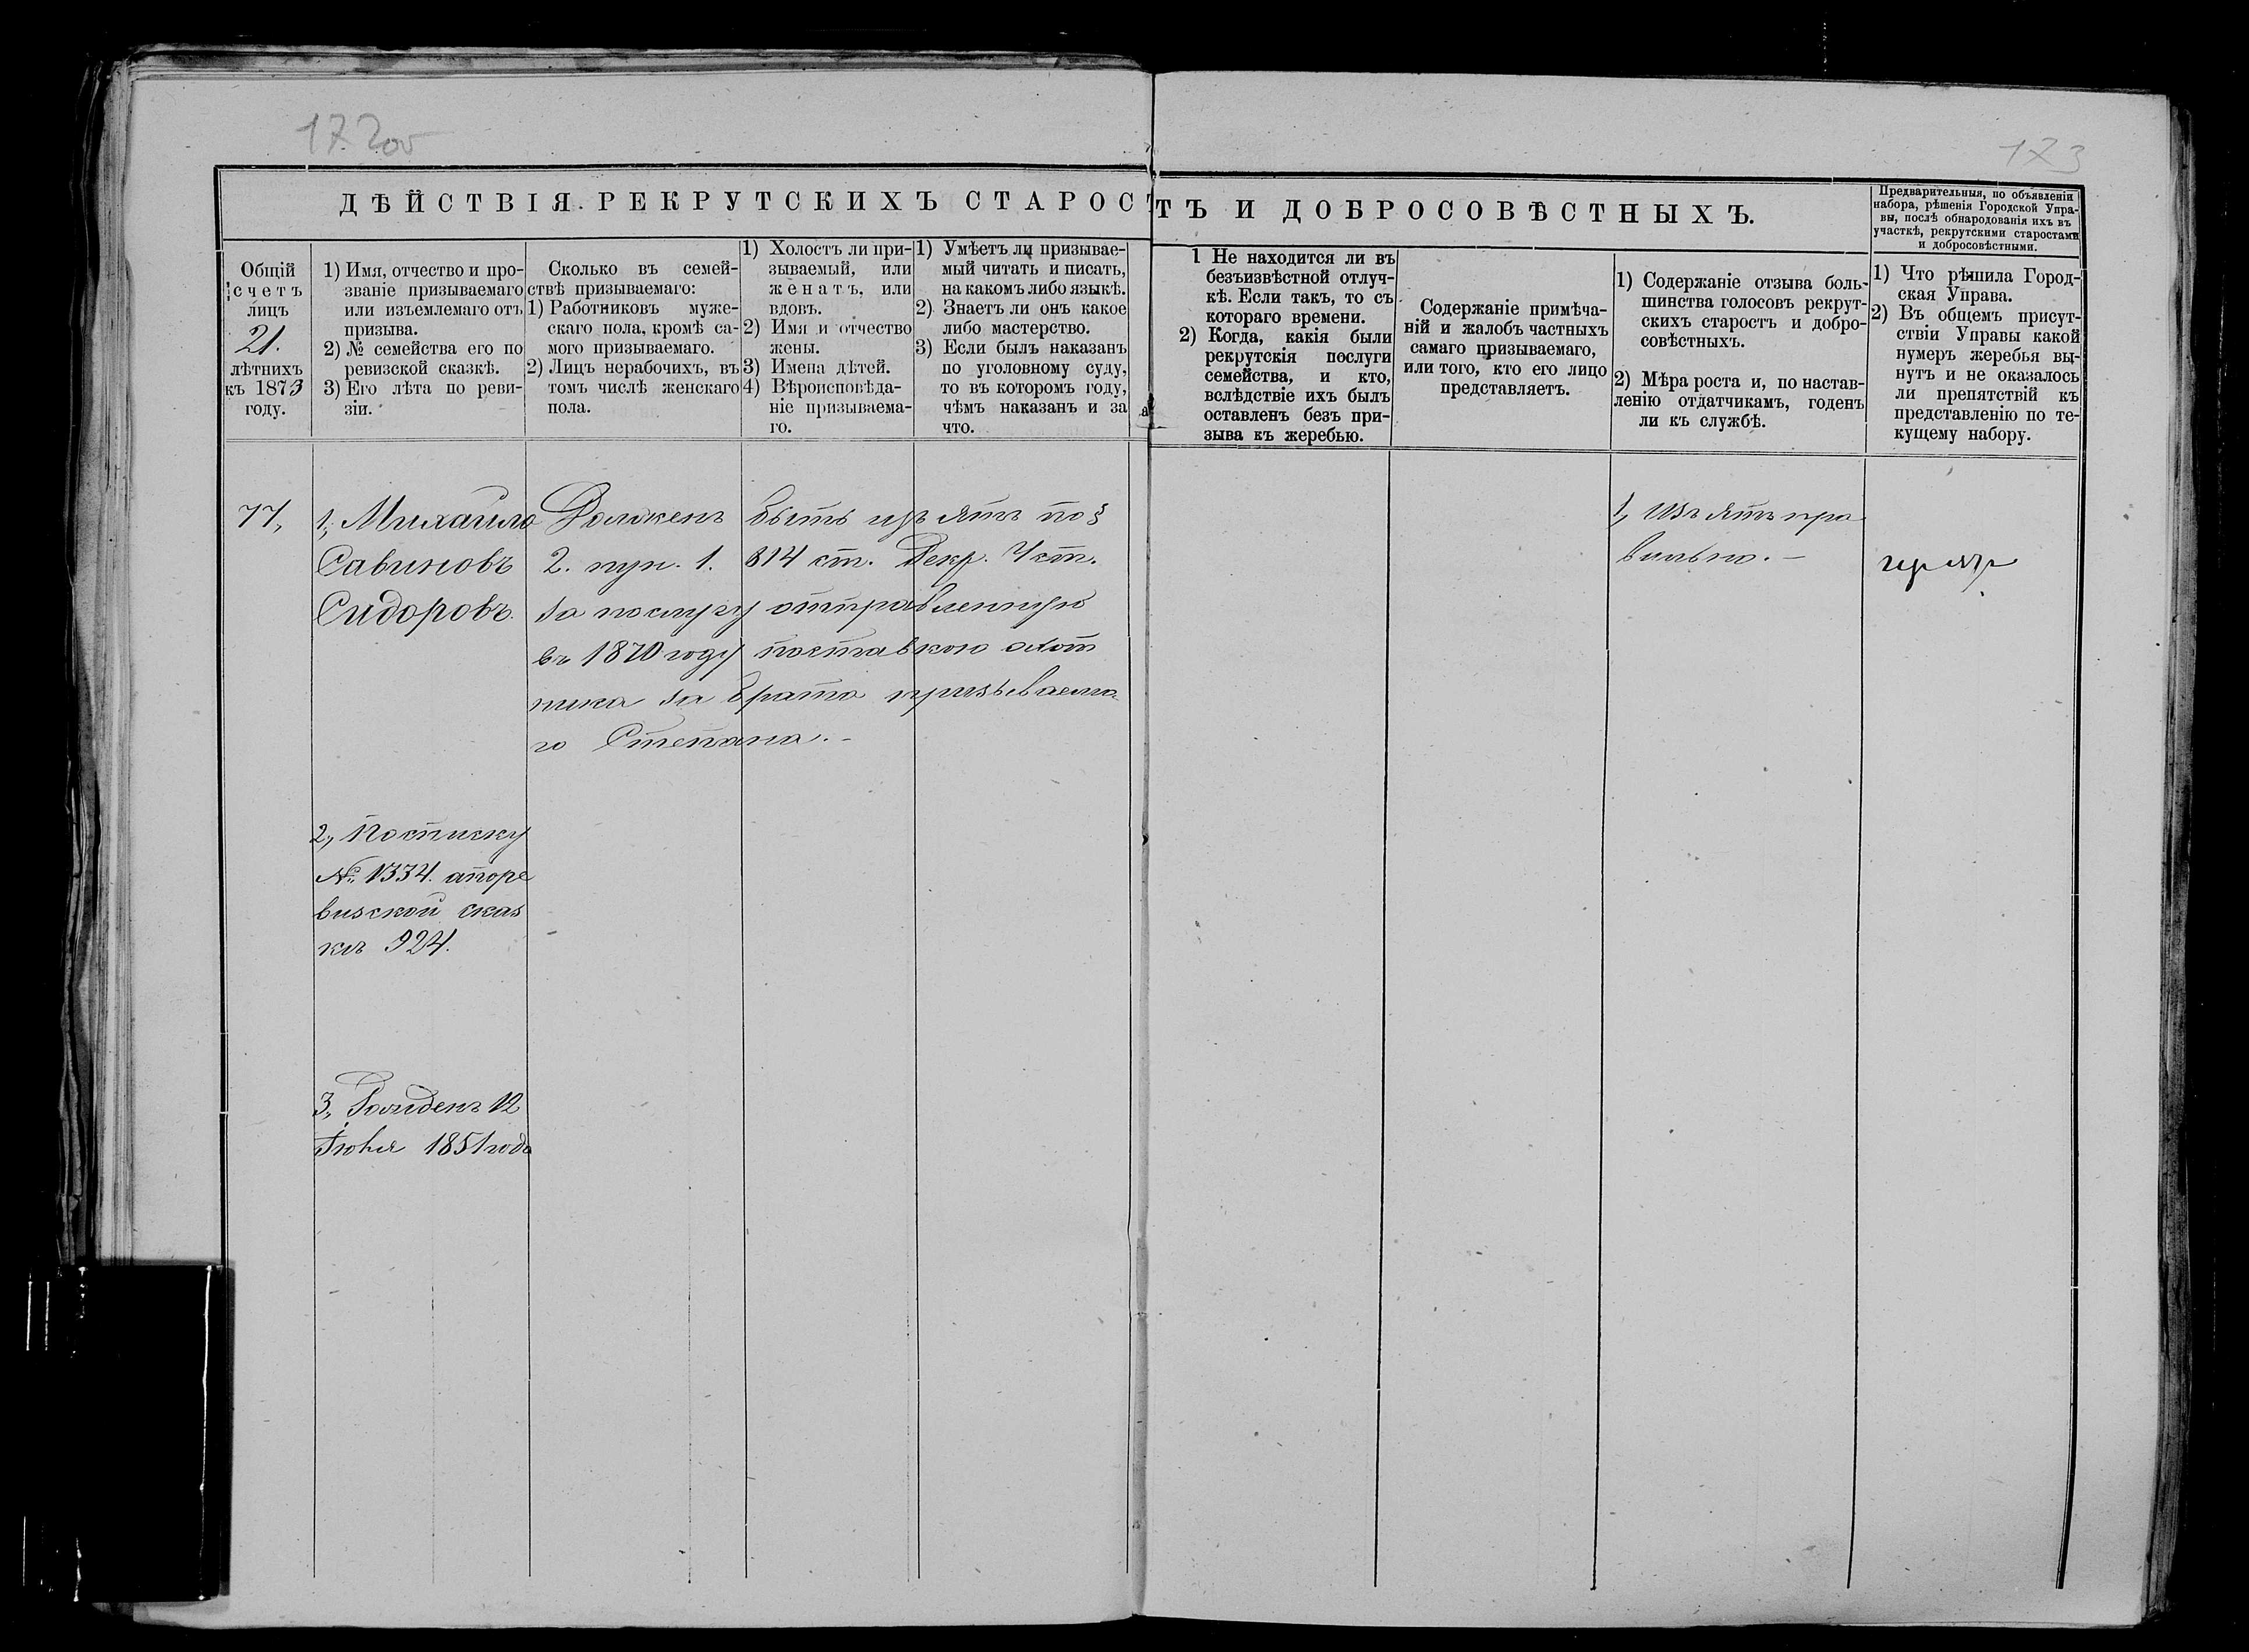 172об
173
ДѢЙСТВІЯ РЕКРУТСКИХЪ СТАРОСТЪ И ДОБРОСОВѢСТНЫХЪ.
Предварительныя, по объявленіи
набора, рѣшенія Городской Упра-
вы, послѣ обнародованія ихъ въ
участкѣ, рекрутскими старостами
и добросовѣстными.
Общій
счетъ
лицъ
21.
лѣтнихъ
къ 1873
году.
1) Имя, отчество и про-
званіе призываемаго
или изъемлемаго отъ
призыва.
2) № семейства его по
ревизской сказкѣ.
3) Его лѣта по реви-
зіи.
Сколько въ семей-
ствѣ призываемаго:
1) Работниковъ муже-
скаго пола, кромѣ са-
мого призываемаго.
2) Лицъ нерабочихъ, въ
томъ числѣ женскаго
пола.
1) Холостъ ли при-
зываемый, или
женатъ, или
вдовъ.
2) Имя и отчество
жены.
3) Имена дѣтей.
4) Вѣроисповѣда-
ніе призываема-
го.
1) Умѣетъ ли призывае-
мый читать и писать,
на какомъ либо языкѣ.
2) Знаетъ ли онъ какое
либо мастерство.
3) Если былъ наказанъ
по уголовному суду,
то въ которомъ году,
чѣмъ наказанъ и за
что.
1 Не находится ли въ
безъизвѣстной отлуч-
кѣ. Если такъ, то съ
котораго времени.
2) Когда, какія были
рекрутскія послуги
семейства, и кто,
вслѣдствіе ихъ былъ
оставленъ безъ при-
зыва къ жеребью.
Содержаніе примѣча-
ній и жалобъ частныхъ
самаго призываемаго,
или того, кто его лицо
представляетъ.
1) Содержаніе отзыва боль-
шинства голосовъ рекрут-
скихъ старостъ и добро-
совѣстныхъ.
2) Мѣра роста и, по настав-
ленію отдатчикамъ, годенъ
ли къ службѣ.
1) Что рѣшила Город-
ская Управа.
2) Въ общемъ присут-
ствіи Управы какой
нумеръ жеребья вы-
нутъ и не оказалось
ли препятствій къ
представленію по те-
кущему набору.
77,
1, Михаило
Савиновъ
Сидоровъ.
Долженъ быть изъятъ по §
2. пун. 1. 814 ст. Рекр. Уст.
за послугу отправленную
въ 1870 году поставкою охот
ника за брата призываема
го Степана.-
1, Изъятъ пра
вильно.-
2, По списку
№ 1334. а по ре
визской сказ
кѣ 924.
3, Рожденъ 12
Іюня 1851 года